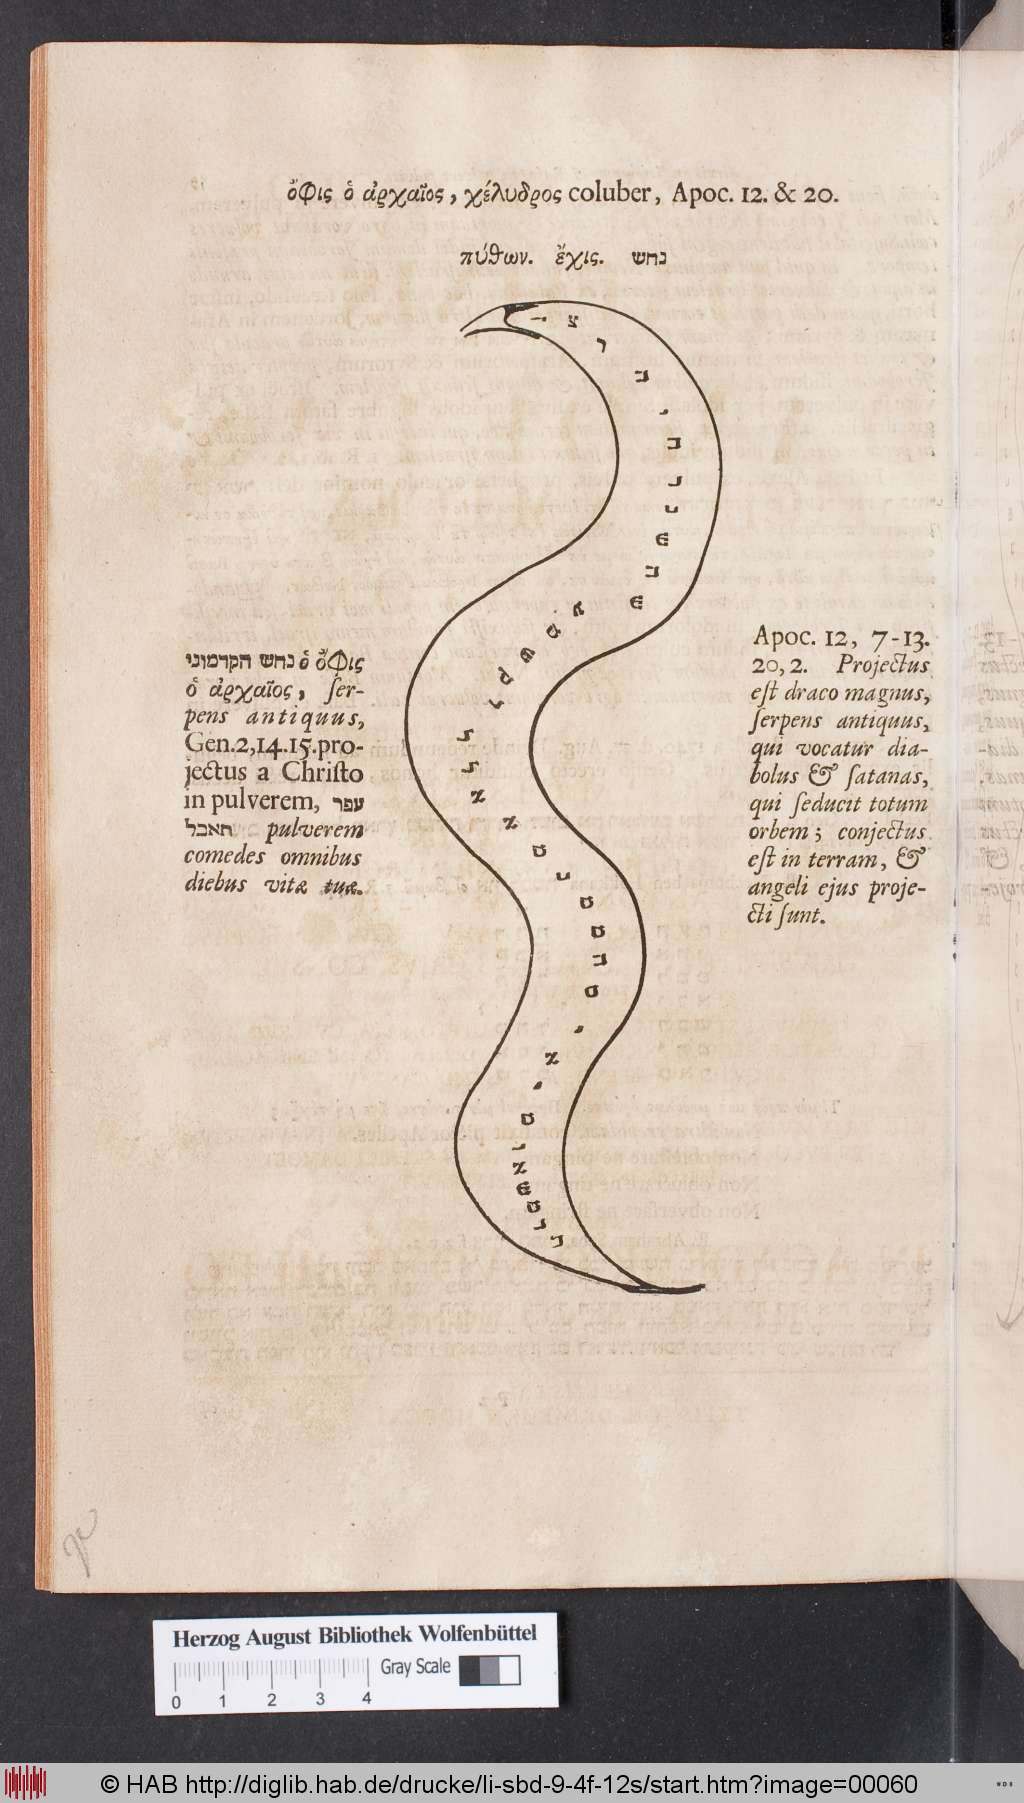 ὄφις ὁ ἀρχαῖος, χέλυδρος coluber, Apoc. 12. & 20.
πύθων. ἔχις. נחש
נחש הקדמוני ὁ ὄφις
ὁ ἀρχαῖος, ſer-
pens antiquus,
Gen. 2, 14. 15. pro-
jectus a Chriſto
in pulverem, עפר
תאכל pulverem
comedes omnibus
diebus vitæ tuæ.
Apoc. 12, 7-13.
20, 2. Projectus
eſt draco magnus,
ſerpens antiquus,
qui vocatur dia-
bolus & ſatanas,
qui ſeducit totum
orbem; conjectus
eſt in terram, &
angeli ejus proje-
cti ſunt.
Herzog August Bibliothek Wolfenbüttel
Gray Scale
0 1 2 3 4
© HAB http://diglib.hab.de/drucke/li-sbd-9-4f-12s/start.htm?image=00060